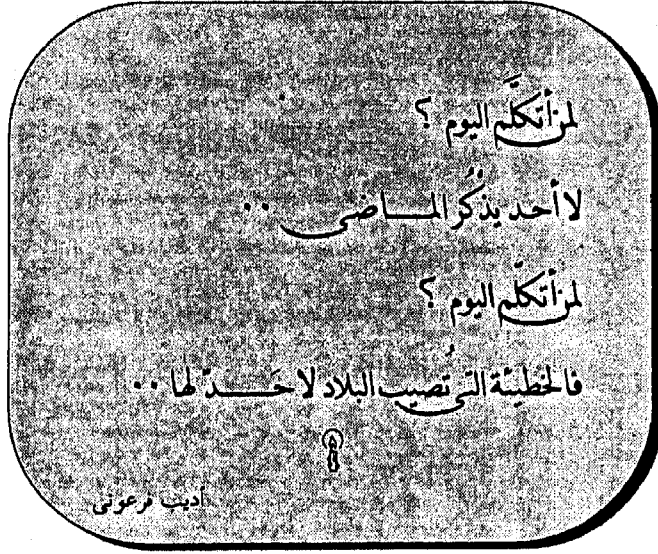 لمن أتكلَّم اليوم ؟
لا أحد يذْكُر المـــاضى . .
لمن أتكلّم اليوم ؟
فالخطيئة التى تُصيب البلاد لا حَـــدّ لها . .
أديب فرعونى